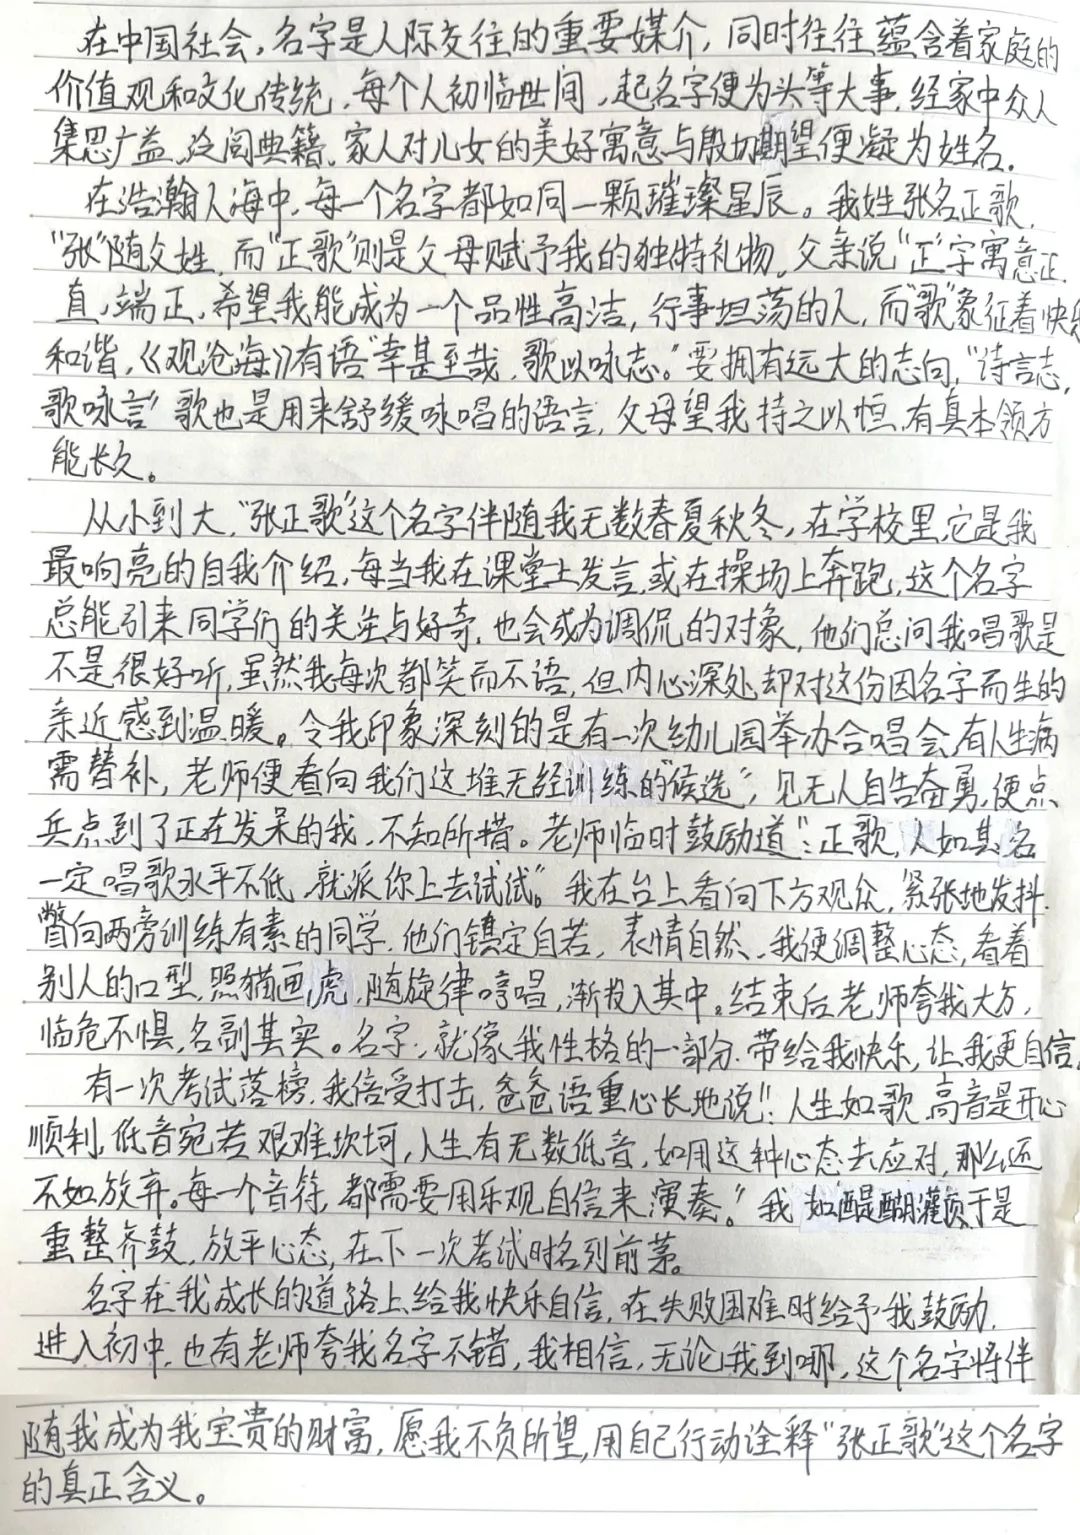 在中国社会,名字是人际交往的重要媒介,同时往往蕴含着家庭的
价值观和文化传统,每个人初临世间,起名字便为头等大事,经家中众人
集思广益、泛阅典籍,家人对儿女的美好寓意与殷切期望便凝为姓名.
在浩瀚人海中,每一个名字都如同一颗璀璨星辰。我姓张名正歌,
“张”随父姓,而“正歌”则是父母赋予我的独特礼物,父亲说“正”字寓意正
直,端正,希望我能成为一个品性高洁,行事坦荡的人,而“歌”象征着快乐
和谐,《观沧海》有语“幸甚至哉,歌以咏志。”要拥有远大的志向,“诗言志,
歌咏言”歌也是用来舒缓咏唱的语言,父母望我持之以恒,有真本领方
能长久。
从小到大,“张正歌”这个名字伴随我无数春夏秋冬,在学校里,它是我
最响亮的自我介绍,每当我在课堂上发言,或在操场上奔跑,这个名字
总能引来同学们的关注与好奇,也会成为调侃的对象,他们总问我唱歌是
不是很好听,虽然我每次都笑而不语,但内心深处却对这份因名字而生的
亲近感到温暖。令我印象深刻的是有一次幼儿园举办合唱会,有人生病
需替补,老师便看向我们这堆无经训练的“候选”,见无人自告奋勇,便点
兵点到了正在发呆的我,不知所措。老师临时鼓励道:“正歌,人如其名
一定唱歌水平不低,就派你上去试试。”我在台上看向下方观众,紧张地发抖.
瞥向两旁训练有素的同学,他们镇定自若,表情自然,我便调整心态,看着
别人的口型,照猫画虎,随旋律哼唱,渐投入其中。结束后老师夸我大方,
临危不惧,名副其实。名字,就像我性格的一部分,带给我快乐,让我更自信.
有一次考试落榜,我倍受打击,爸爸语重心长地说:“人生如歌,高音是开心
顺利,低音宛若艰难坎坷,人生有无数低音,如用这种心态去应对,那么还
不如放弃。每一个音符,都需要用乐观自信来演奏。”我如醍醐灌顶于是
重整齐鼓,放平心态,在下一次考试时名列前茅。
名字在我成长的道路上给我快乐自信,在失败困难时给予我鼓励,
进入初中,也有老师夸我名字不错,我相信,无论我到哪,这个名字将伴
随我成为我宝贵的财富,愿我不负所望,用自己行动诠释“张正歌”这个名字
的真正含义。